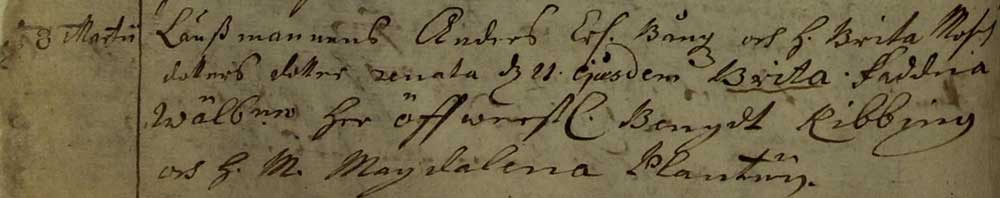 8 Martii Länßmannens Anders Erss. Bång och h. Brita Mosis
dotters dotter renata d 21. ejusdem Brita. faddra
Wälb: her öffwerstl. Bengdt Ribbing
och h. M. Magdalena Plantin.